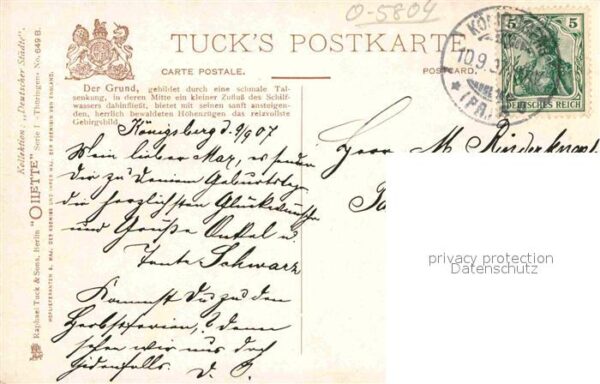 O-5804
TUCK'S POSTKARTE
CARTE POSTALE.
POSTCARD.
Der Grund, gebildet durch eine schmale Tal-
senkung, in deren Mitte ein kleiner Zufluß des Schilf-
wassers dahinfließt, bietet mit seinen sanft ansteigen-
den, herrlich bewaldeten Höhenzügen das reizvollste
Gebirgsbild.
Kollektion: „Deutscher Städte".
"OILETTE" Serie I „Thüringen" No. 649 B.
Raphael Tuck & Sons, Berlin
5 5
DEUTSCHES REICH
KÖNIGSBERG
10.9.
(PR.)
Königsberg d. 9/9 07
Mein lieber Max, es senden
Dir zu Deinem Geburtstag
die herzlichsten Glückwünsche
und Grüße Onkel u.
Tante Schwarz
Kommst Du zu den
Herbstferien, denn
sehen wir uns doch
jedenfalls. D. O.
Herrn M. Rinderknecht
privacy protection
Datenschutz